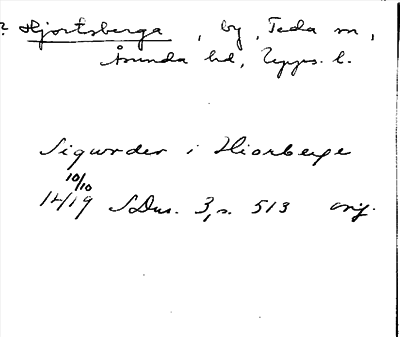 ? Hjortsberga, by, Teda sn,
Åsunda hd, Upps. l.
Sigurder i Hiorberge
10/10
1419 SDns. 3, s. 513 orig.